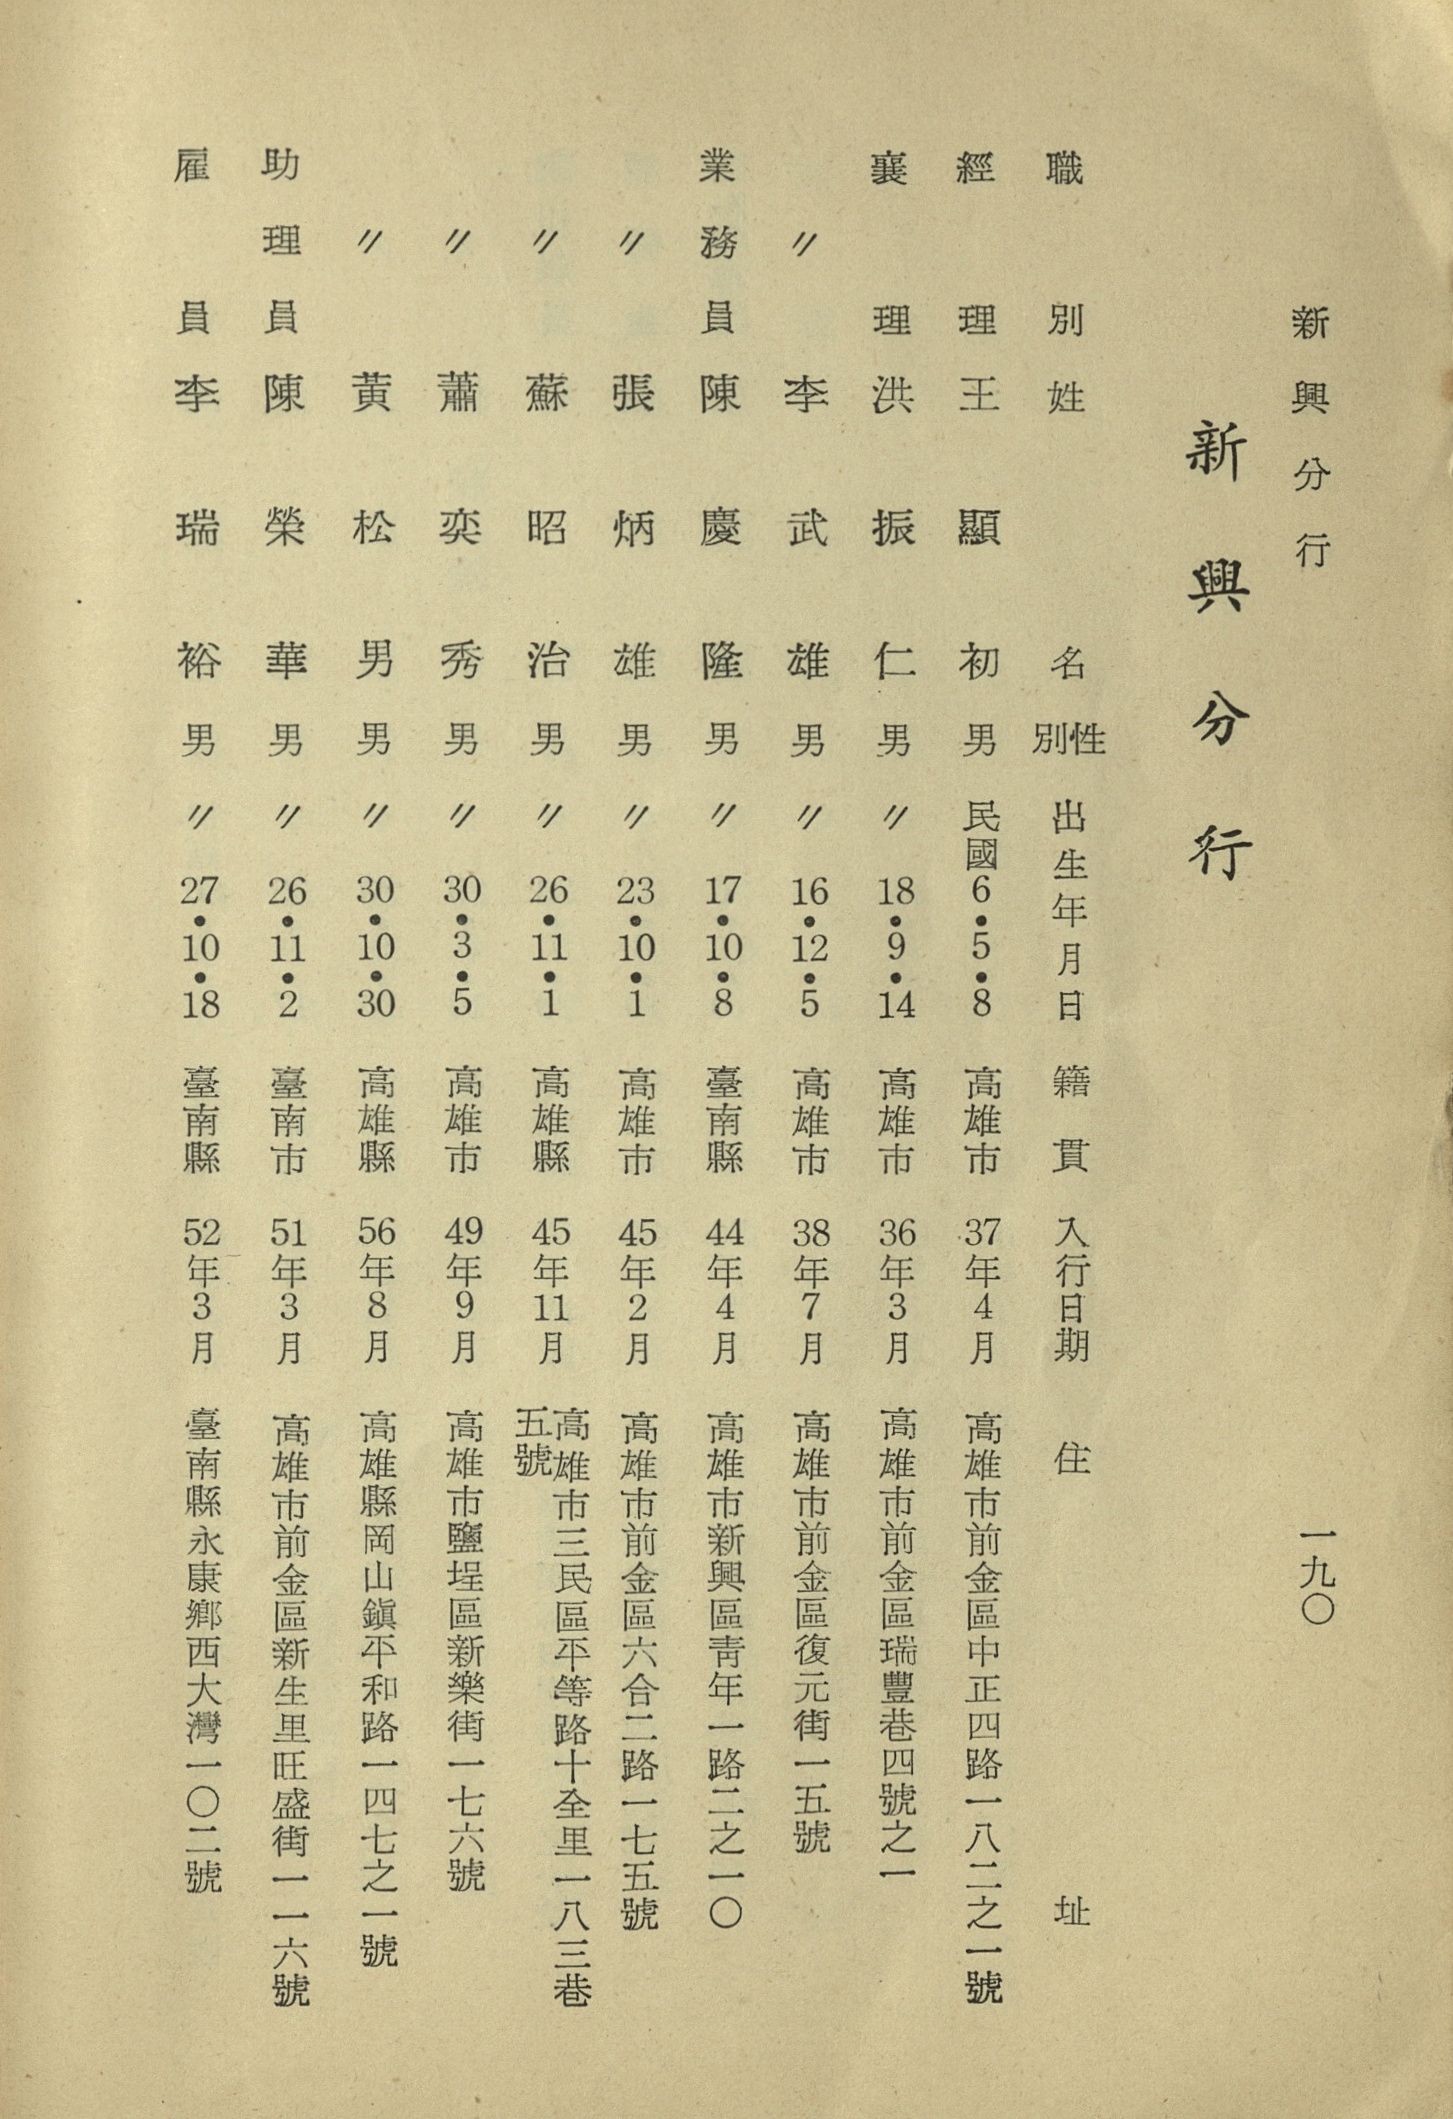 新興分行
一九〇
新興分行
職別 姓名 性別 出生年月日 籍貫 入行日期 住址
經理 王顯初 男 民國6•5•8 高雄市 37年4月 高雄市前金區中正四路一八二之一號
襄理 洪振仁 男 〃18•9•14 高雄市 36年3月 高雄市前金區瑞豐巷四號之一
〃 李武雄 男 〃16•12•5 高雄市 38年7月 高雄市前金區復元街一五號
業務員 陳慶隆 男 〃17•10•8 臺南縣 44年4月 高雄市新興區青年一路二之一〇
〃 張炳雄 男 〃23•10•1 高雄市 45年2月 高雄市前金區六合二路一七五號
〃 蘇昭治 男 〃26•11•1 高雄縣 45年11月 高雄市三民區平等路十全里一八三巷
五號
〃 蕭奕秀 男 〃30•3•5 高雄市 49年9月 高雄市鹽埕區新樂街一七六號
〃 黃松男 男 〃30•10•30 高雄縣 56年8月 高雄縣岡山鎮平和路一四七之一號
助理員 陳榮華 男 〃26•11•2 臺南市 51年3月 高雄市前金區新生里旺盛街一一六號
雇員 李瑞裕 男 〃27•10•18 臺南縣 52年3月 臺南縣永康鄉西大灣一〇二號